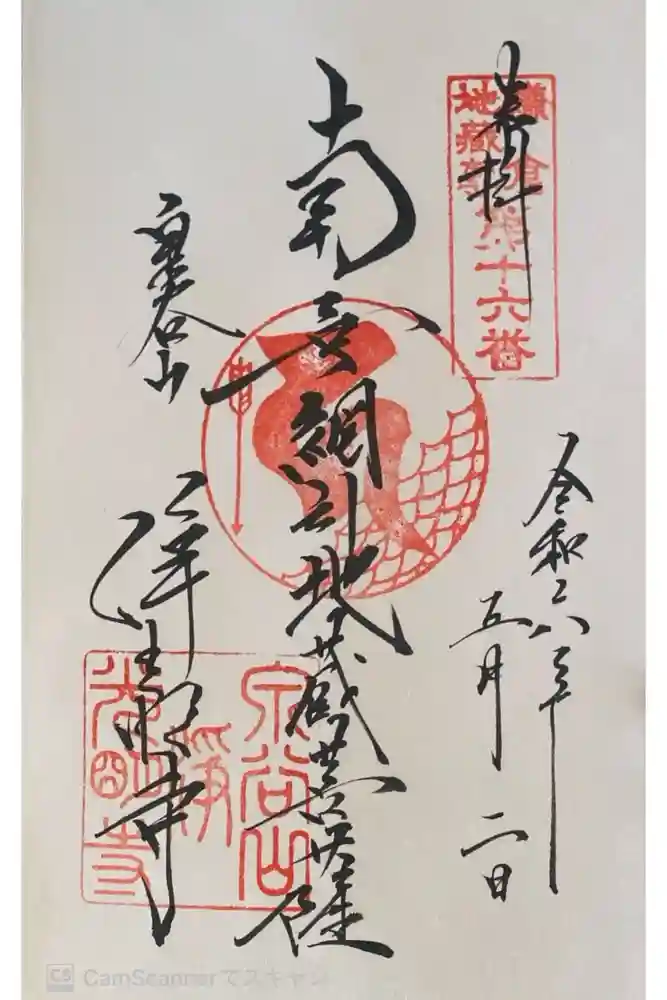 奉拝
鎌倉
地蔵尊
第十六番
令和六年
五月二日
南無網引地蔵菩薩
泉谷山
浄光明寺
泉谷山
浄
光明寺
CS CamScannerでスキャン